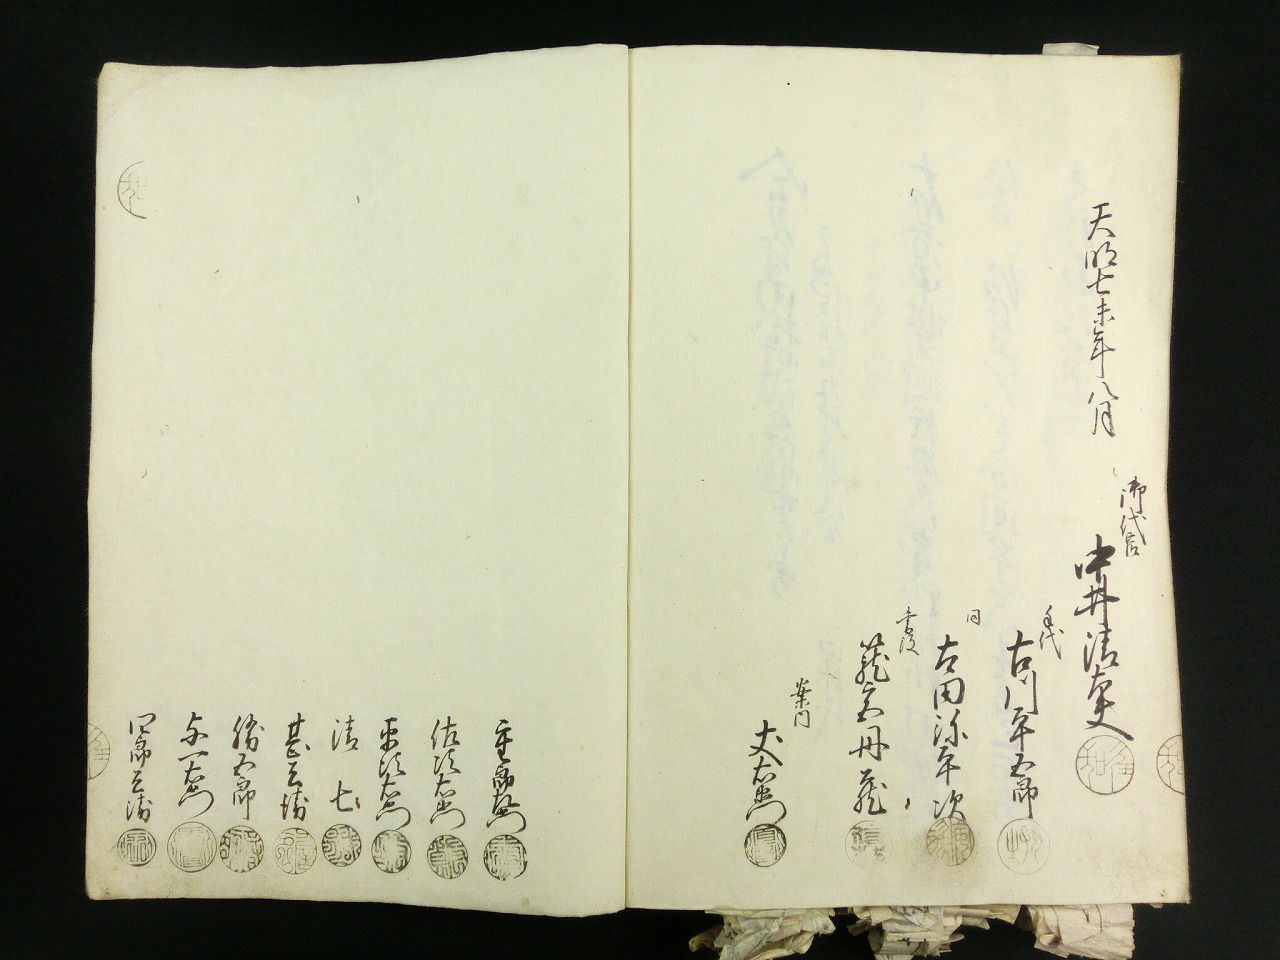 天明七未年八月
御代官
中井清太夫
手代
古川平五郎
同
古田弥平次
書役
丹蔵
案内
丈右衛門
重郎右衛門
佐次右衛門
平次右衛門
清七
甚兵衛
勝五郎
与一右衛門
四郎兵衛